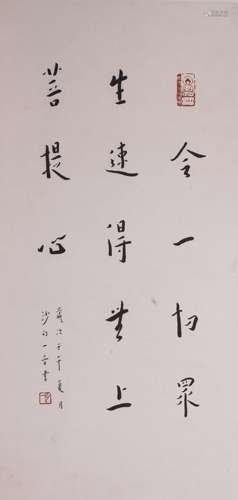 令一切眾
生速得無上
菩提心
歲次壬午夏月
沙門一音書